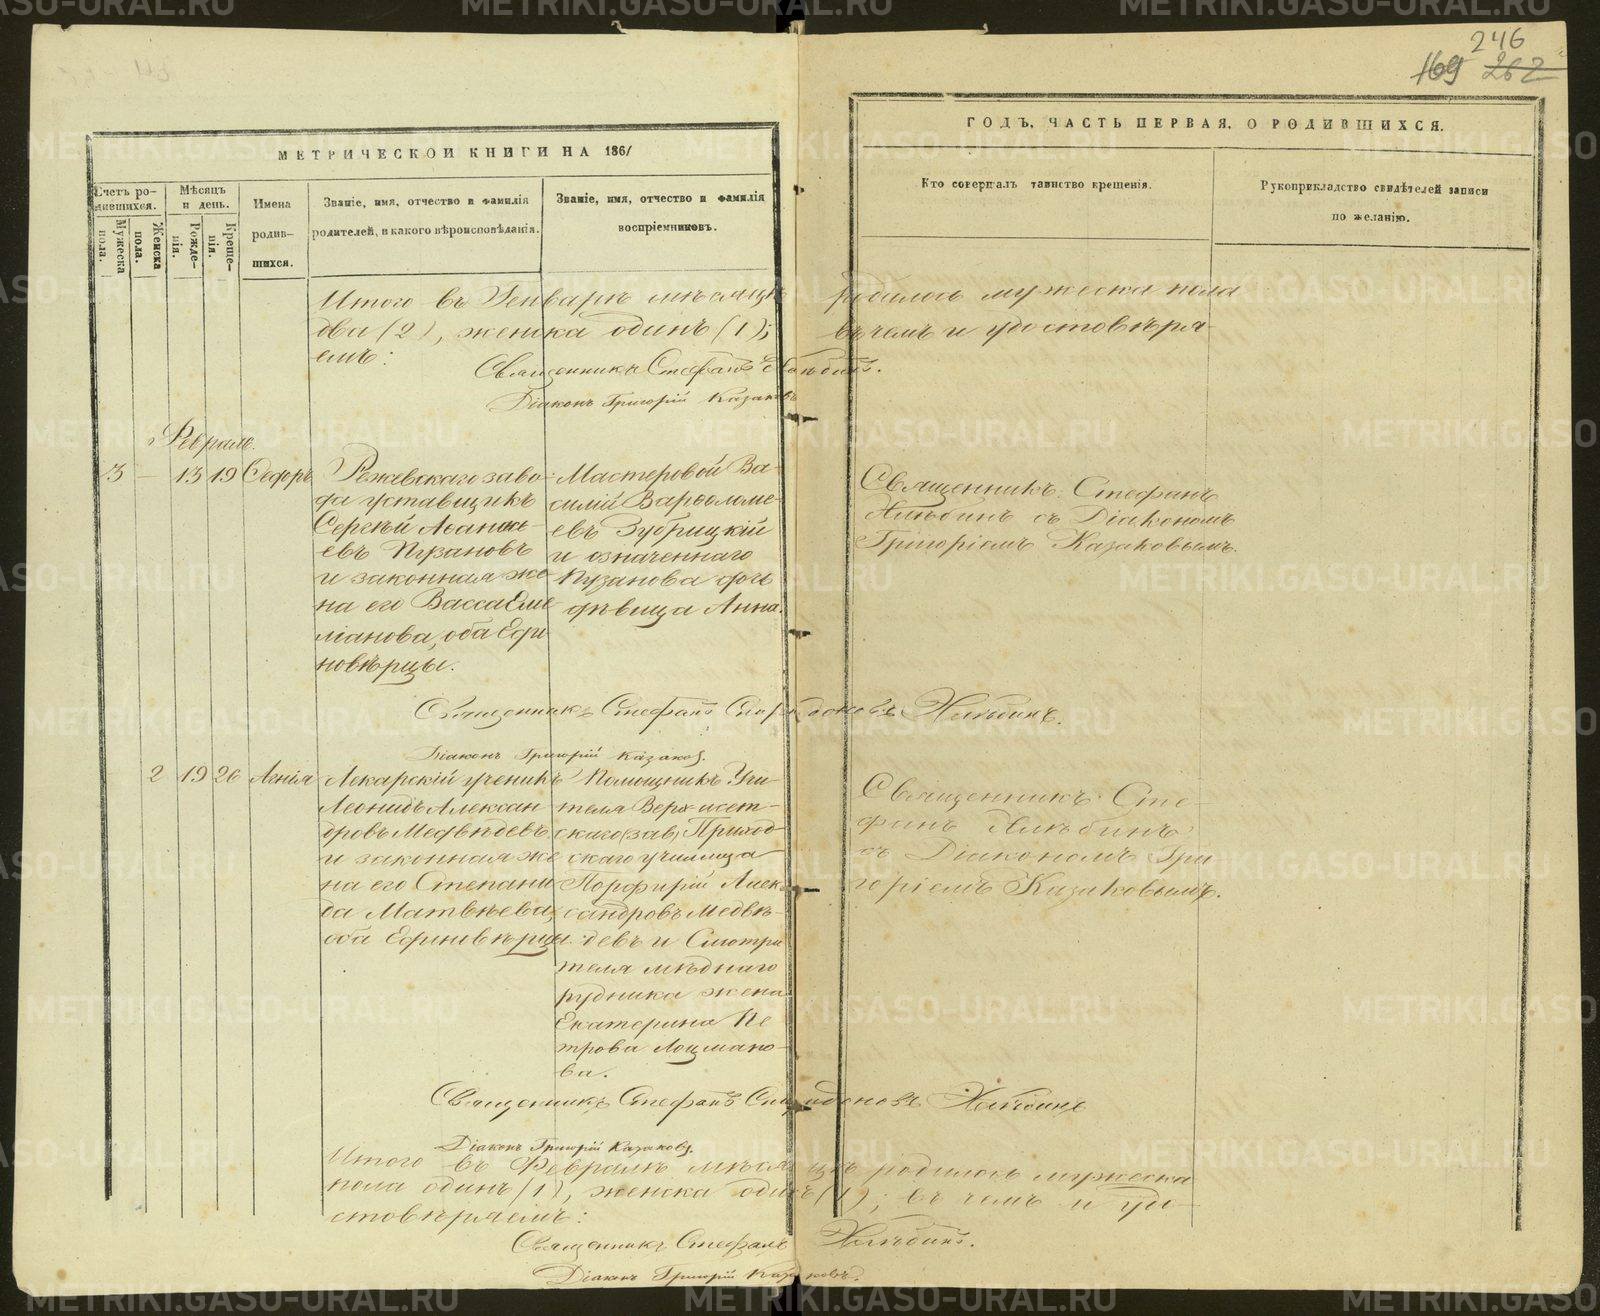 246
169 262
МЕТРИЧЕСКОЙ КНИГИ НА 1861
ГОДЪ, ЧАСТЬ ПЕРВАЯ, О РОДИВШИХСЯ.
Счетъ ро-
дившихся.
Мужеска
пола.
Женска
пола.
Мѣсяцъ
и день.
Рожде-
нія.
Креще-
нія.
Имена
родив-
шихся.
Званіе, имя, отчество и фамилія
родителей, и какого вѣроисповѣданія.
Званіе, имя, отчество и фамилія
воспріемниковъ.
Кто совершалъ таинство крещенія.
Рукоприкладство свидѣтелей записи
по желанію.
Итого въ Генварѣ мѣсяцѣ родилось мужеска пола
два (2), женска одинъ (1); въ чемъ и удостовѣря-
емъ:
Священникъ Стефанъ Хлѣбинъ.
Діаконъ Григорій Казаковъ
Февраль
3 — 13 19 Ѳедоръ
Режевскаго заво-
да уставщикъ
Сергѣй Аѳанась-
евъ Пузановъ
и законная же-
на его Васса Еме
ліанова, оба Еди
новѣрцы.
Мастеровой Ва-
силій Варѳоломе-
евъ Зубрицкій
и означеннаго
Пузанова дочь
дѣвица Анна.
Священникъ Стефанъ
Хлѣбинъ съ Діакономъ
Григоріемъ Казаковымъ.
Священникъ Стефанъ Спиридоновъ Хлѣбинъ.
Діаконъ Григорій Казаковъ.
2 19 26 Агнія
Лекарскій ученикъ
Леонидъ Алексан
дровъ Медвѣдевъ
и законная же
на его Степани
да Матвѣева,
оба Единовѣрцы.
Помощникъ Учи-
теля Верхъ-исет-
скаго (зав) Приход-
скаго училища
Порфирій Алек-
сандровъ Медвѣ-
девъ и Смотри
теля мѣднаго
рудника жена
Екатерина Пе
трова Лоцмано-
ва.
Священникъ Сте
фанъ Хлѣбинъ
съ Діакономъ Гри
горіемъ Казаковымъ.
Священникъ Стефанъ Спиридоновъ Хлѣбинъ
Діаконъ Григорій Казаковъ.
Итого въ Февралѣ мѣсяцѣ родилось мужеска
пола одинъ (1), женска одинъ (1); въ чемъ и удо-
стовѣряемъ:
Священникъ Стефанъ Хлѣбинъ.
Діаконъ Григорій Казаковъ.
METRIKI.GASO-URAL.RU